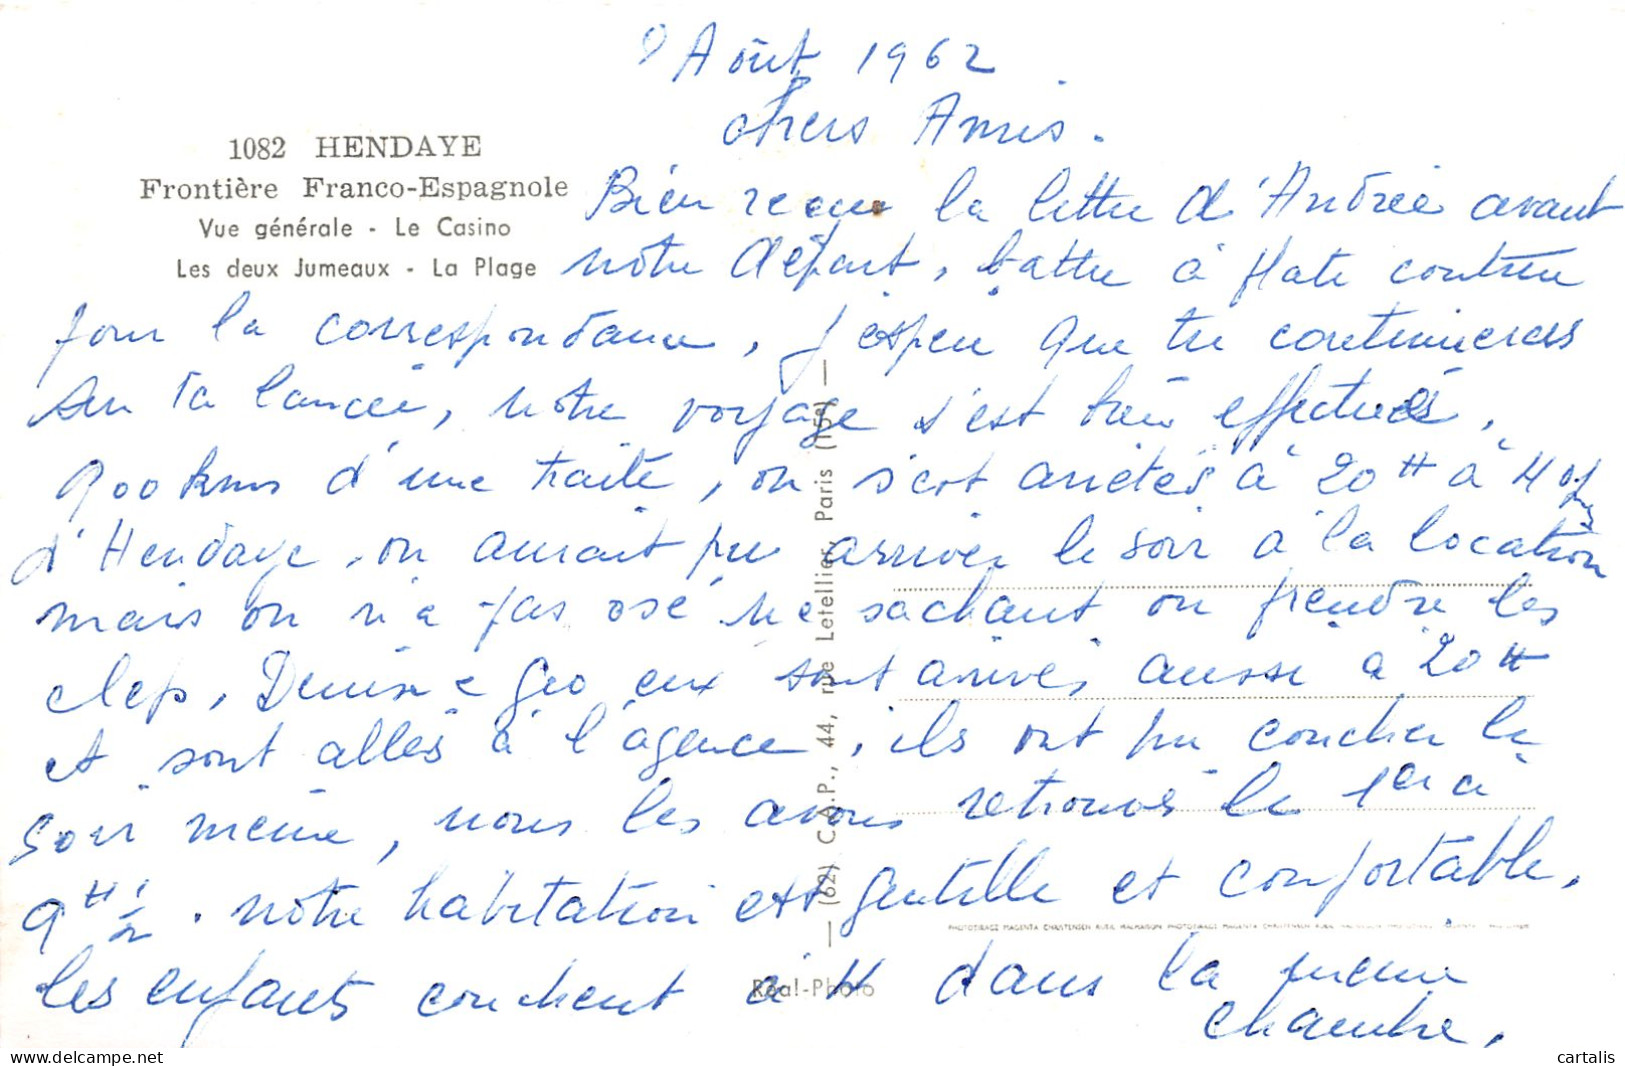 9 Août 1962
chers Amis.
1082 HENDAYE
Frontière Franco-Espagnole
Vue générale - Le Casino
Les deux Jumeaux - La Plage
Bien reçue la lettre d'Andrée avant
notre départ, battre à plate couture
pour la correspondance, j'espère que tu continueras
sur ta lancée, notre voyage s'est bien effectués,
900 kms d'une traite, on s'est arrêtés à 20 H à 4
d'Hendaye, on aurait pu arriver le soir à la location
mais on n'a pas osé ne sachant où prendre les
clefs, Denise Géo eux sont arrivés aussi à 20 H
et sont allés à l'agence, ils ont pu coucher le
soir même, nous les avons retrouvés le 1er à
9 H 1/2. notre habitation est gentille et confortable.
les enfants couchent à 4 dans la même
chambre.
(62) C.A.P., 44, rue Letellier, Paris (15e)
Réal-Photo
cartalis